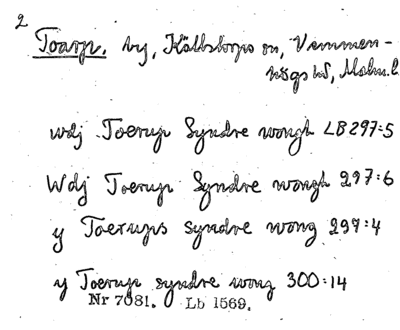 2
Toarp, by, Källstorps sn, Vemmen-
högs hd, Malm.l.
wdj Toerup Syndre wongh LB 297:5
Wdj Toerup Syndre wongh 297:6
y Toerups syndre wong 299:4
y Toerup syndre wong 300:14
Nr 7081. Lb 1569.